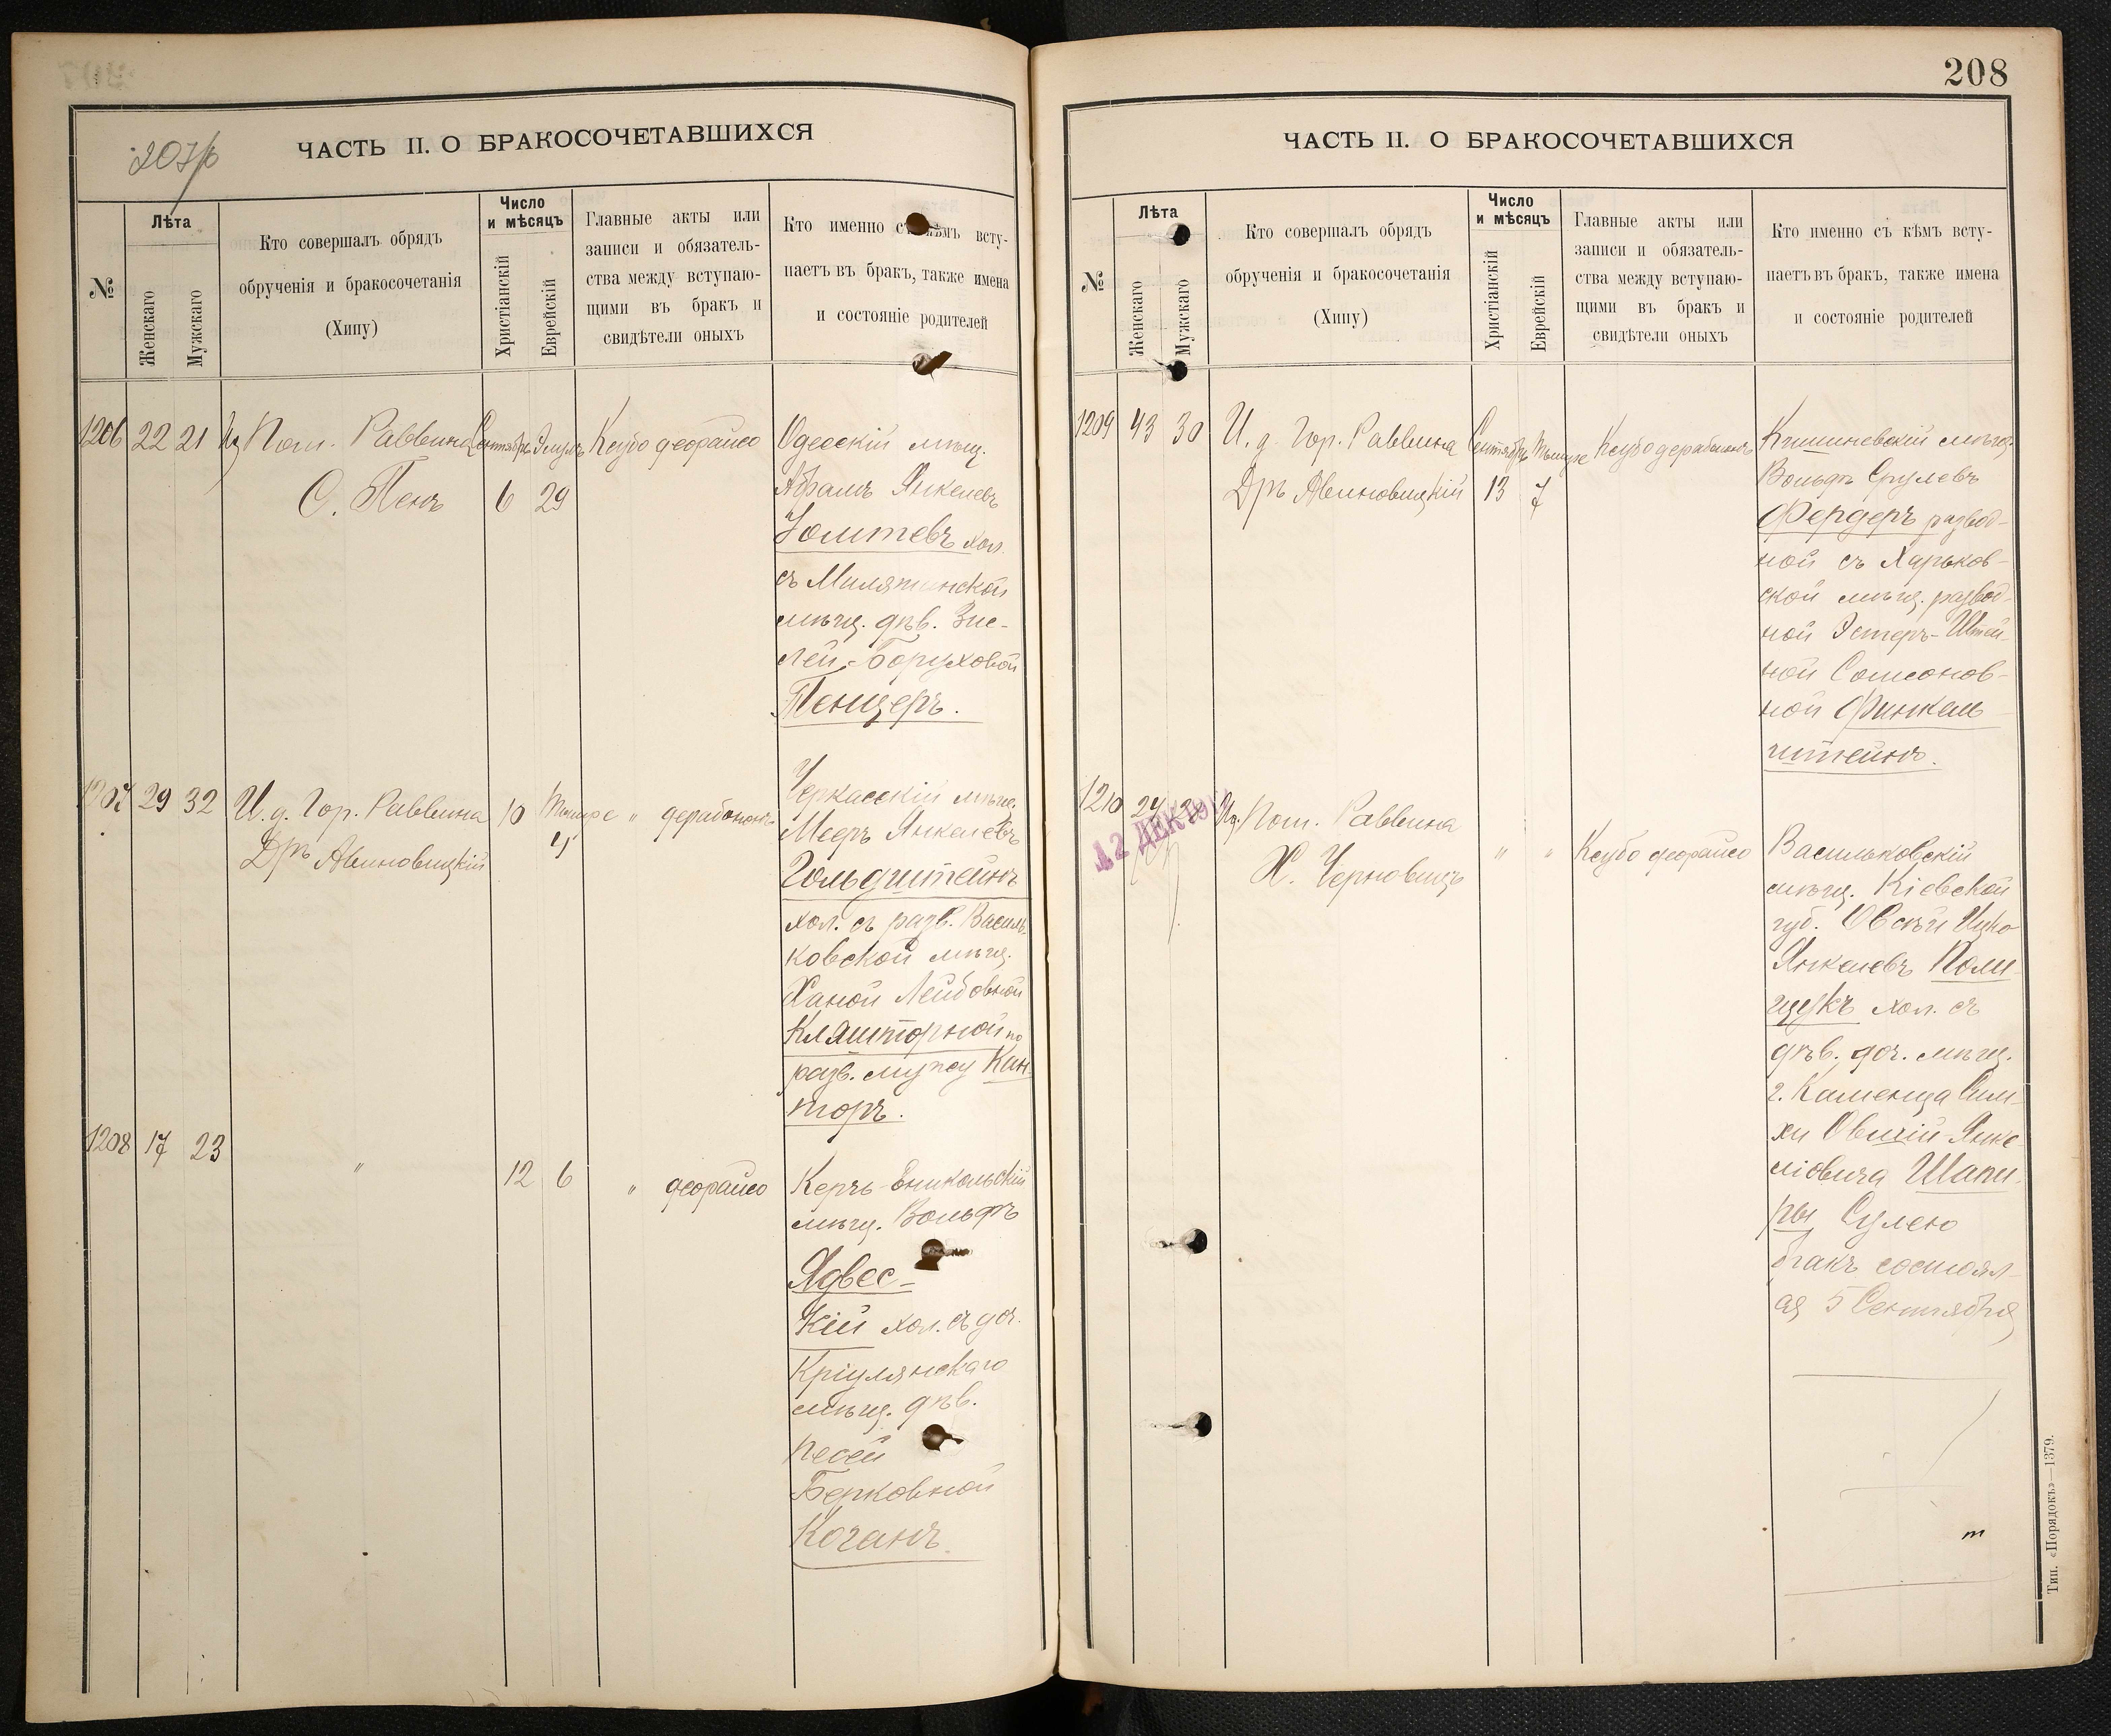 207/b
ЧАСТЬ II. О БРАКОСОЧЕТАВШИХСЯ
№
Лѣта
Женскаго
Мужскаго
Кто совершалъ обрядъ
обрученія и бракосочетанія
(Хипу)
Число
и мѣсяцъ
Христіанскій
Еврейскій
Главные акты или
записи и обязатель-
ства между вступаю-
щими въ бракъ и
свидѣтели оныхъ
Кто именно съ кѣмъ всту-
паетъ въ бракъ, также имена
и состояніе родителей
1206 22 21
Пом. Раввина
С. Пенъ
Сентябрь
6
Элулъ
29
Ксубо деорайсо
Одесскій мѣщ.
Абрамъ Янкелевъ
Іомтевъ хол.
съ Милятинской
мѣщ. дѣв. Зис-
лей-Боруховой
Пенцеръ.
1207 29 32
И. д. Гор. Раввина
Дръ Авиновицкій
10
Тишре
4
" дерабононъ
Черкасскій мѣщ.
Мееръ Янкелевъ
Гольдштейнъ
хол. съ разв. Василь-
ковской мѣщ.
Ханой Лейбовной
Кляшторной по
разв. мужу Кан-
торъ.
1208 17 23
"
12 6
" деорайсо
Керчь-Еникольскій
мѣщ. Вольфъ
Ядвес-
кій хол. съ доч.
Кріулянскаго
мѣщ. дѣв.
Песей
Берковной
Коганъ.
208
ЧАСТЬ II. О БРАКОСОЧЕТАВШИХСЯ
№
Лѣта
Женскаго
Мужскаго
Кто совершалъ обрядъ
обрученія и бракосочетанія
(Хипу)
Число
и мѣсяцъ
Христіанскій
Еврейскій
Главные акты или
записи и обязатель-
ства между вступаю-
щими въ бракъ и
свидѣтели оныхъ
Кто именно съ кѣмъ всту-
паетъ въ бракъ, также имена
и состояніе родителей
1209 43 30
И. д. Гор. Раввина
Дръ Авиновицкій
Сентябрь
13
Тишре
7
Ксубо дерабононъ
Кишиневскій мѣщ.
Вольфъ Срулевъ
Фердеръ развод-
ной съ Харьков-
ской мѣщ. развод-
ной Эстеръ-Штей-
ной Самсонов-
ной Финкель-
штейнъ.
1210 27 30
12 ДЕК 191
Пом. Раввина
Х. Черновицъ
" "
Ксубо деорайсо
Васильковскій
мѣщ. Кіевской
губ. Овсѣй Ицко
Янкелевъ Поли-
щукъ хол. съ
дѣв. доч. мѣщ.
г. Каменца Сим-
хи Овшій Янке-
ліовича Шапи-
ры Сулею
бракъ состоял-
ся 5 Сентября
Тип. «Порядокъ»—1379.